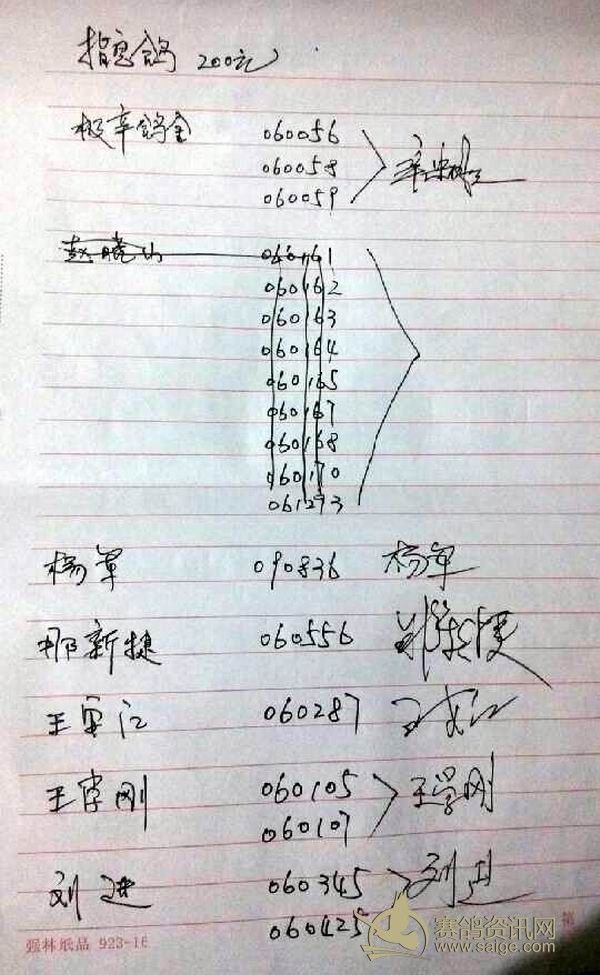 指定鸽 200元
极辛鸽舍 060056
060058
060059
赵晓山 060161
060162
060163
060164
060165
060167
060168
060170
061273
杨军 090836 杨军
邢新捷 060556
王宝江 060287
王学刚 060105 王学刚
060107
刘进 060345 刘卫
060425
强林纸品 923-16
赛鸽资讯网
www.saige.com